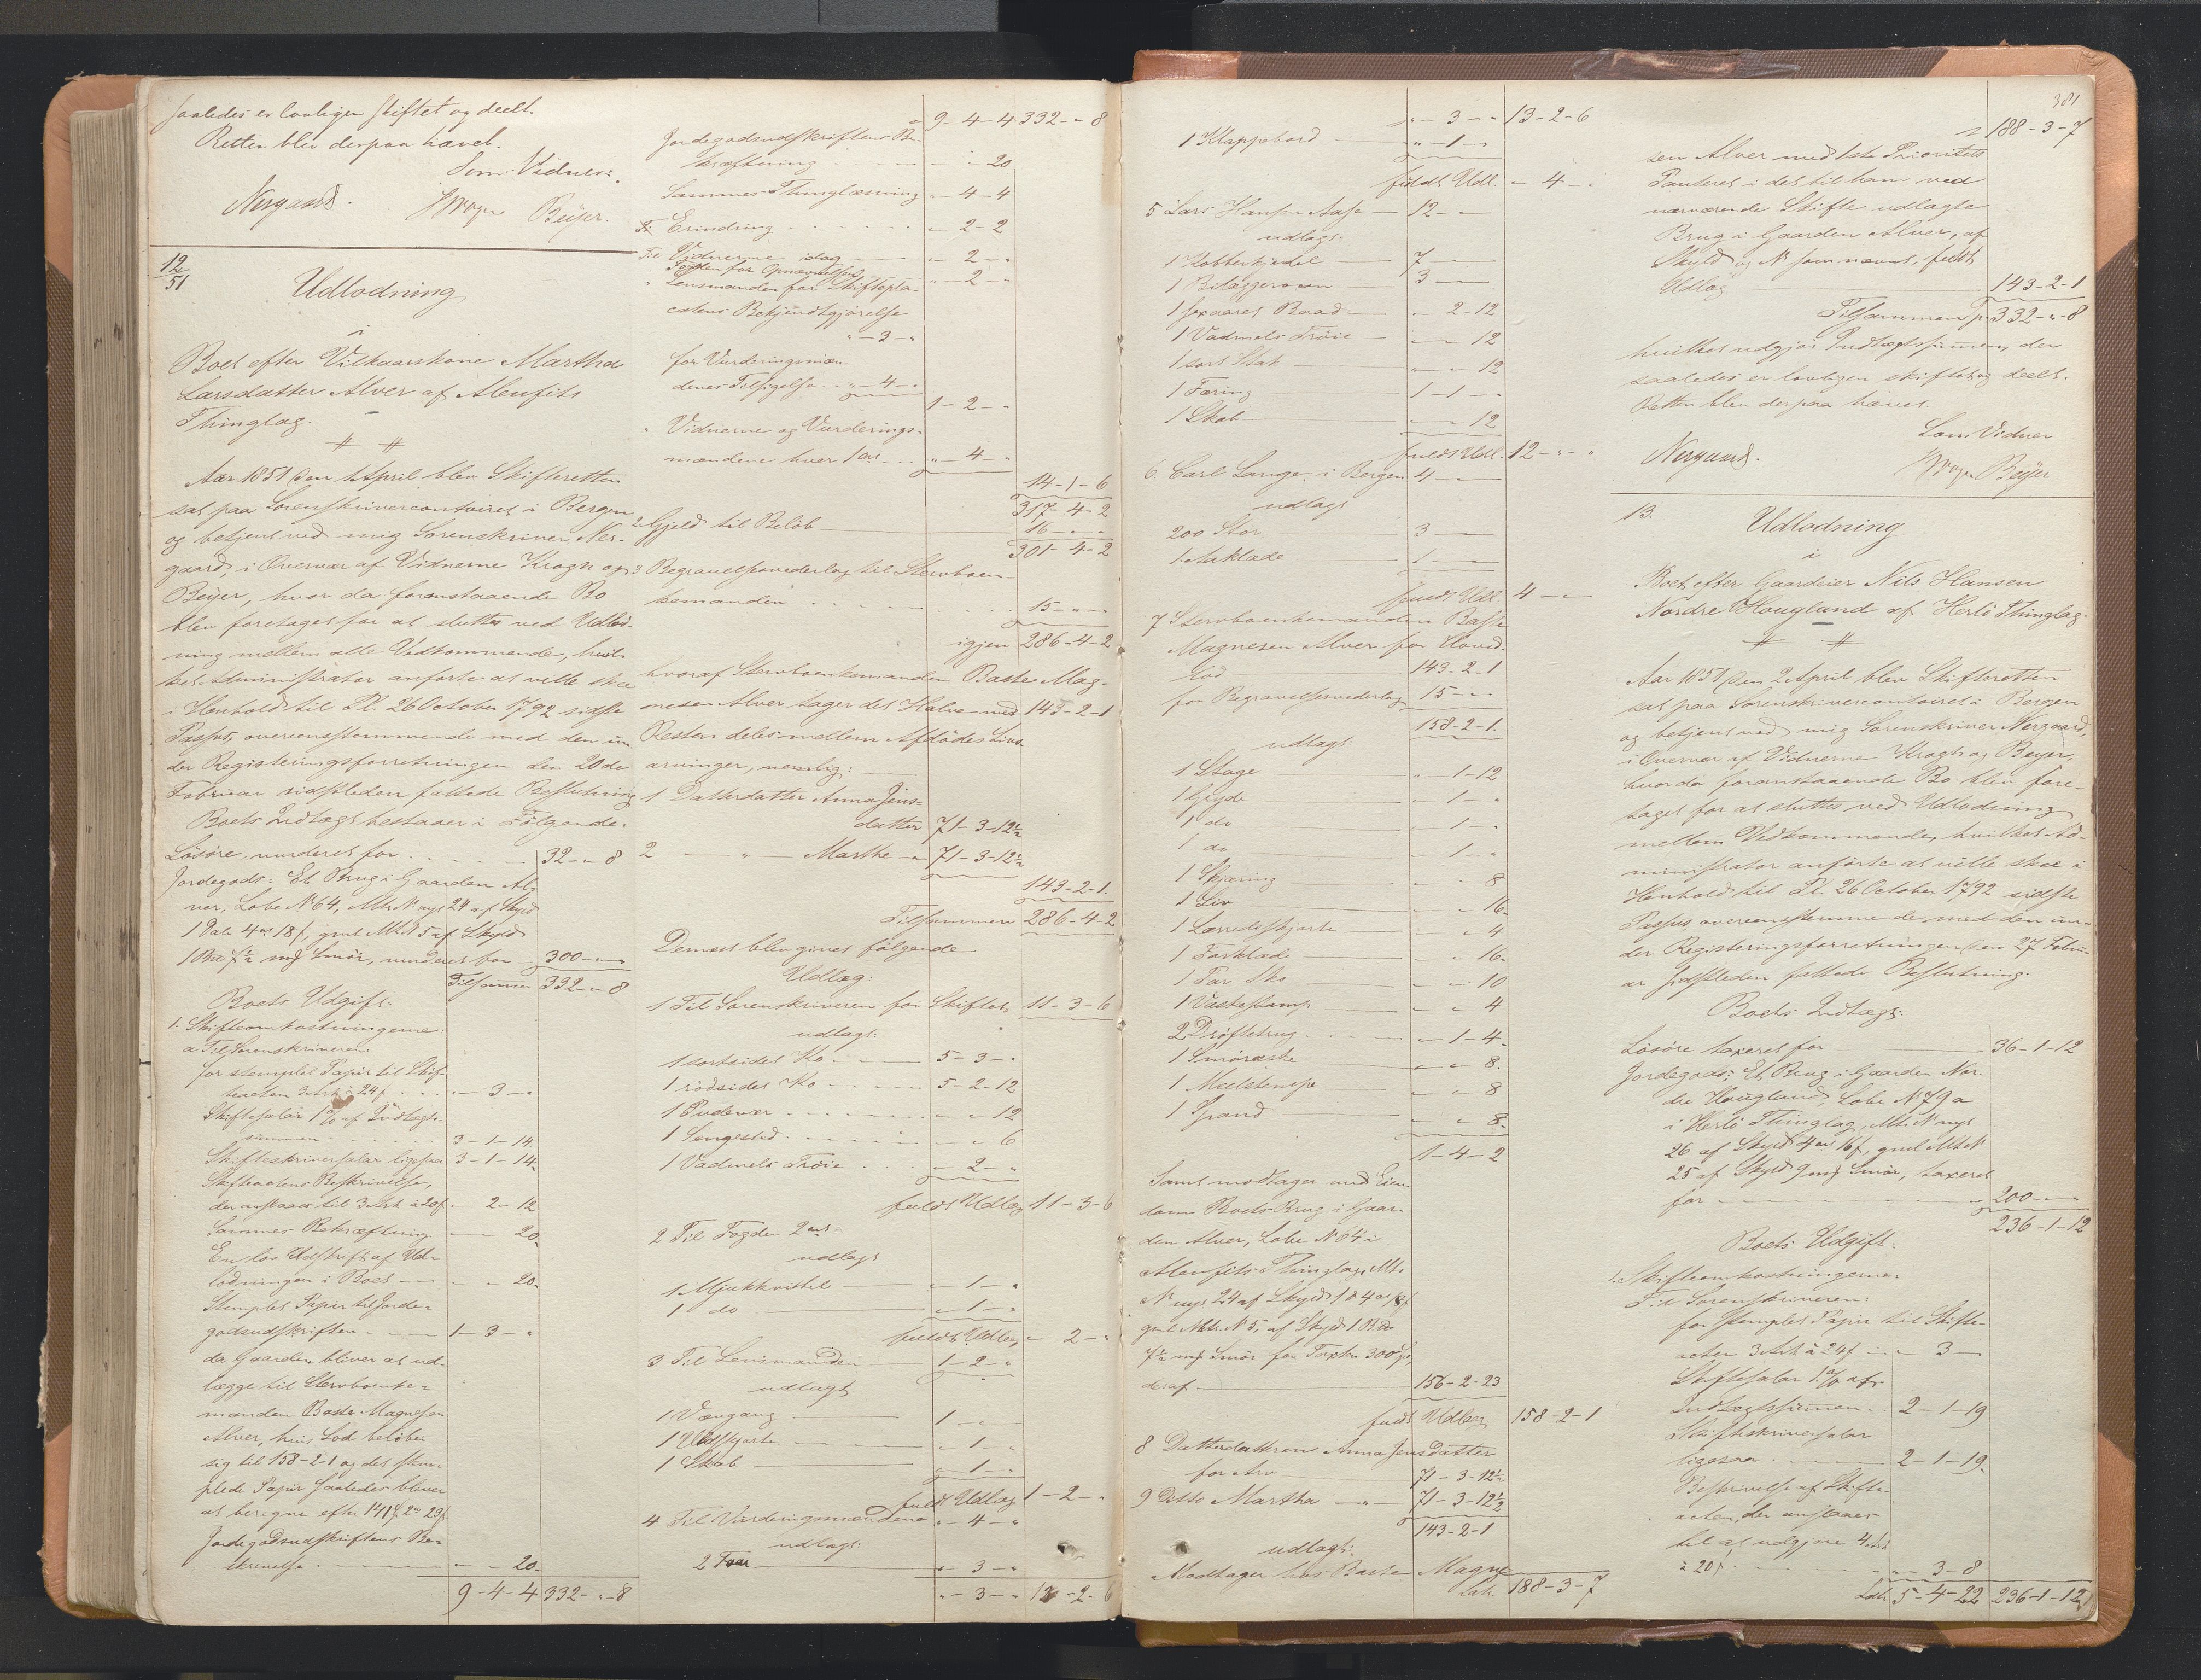 saaledes er lovligen skiftet og deelt.
Retten blev derpaa hævet.
Som Vidner:
Nergaard. Krogh Beÿer.
12/51
Udlodning
i
Boet efter Vilkaarskone Martha
Larsdatter Alver af Alenfits
Thinglag.
Aar 1851 den 1 April blev Skifteretten
sat paa Sorenskrivercontoiret i Bergen
og betjent ved mig Sorenskriver Ner-
gaard, i Overvær af Vidnerne Krogh og
Beÿer, hvor da foranstaaende Bo
blev foretaget for at sluttes ved Udlod-
ning mellem alle Vedkommende, hvil-
ket Administrator anførte at ville skee
i Henhold til Pl. 26 October 1792 sidste
Passus, overeensstemmende med den un-
der Registeringsforretningen den 20de
Februar sidstleden fattede Beslutning
Boets Indtægt bestaaer i Følgende:
Løsøre, vurderet for 32 - " - 8
Jordegods: Et Brug i Gaarden Al-
ver, Løbe No 64, Mtr. No nyt 24 af Skyld
1 Dalr 4 ort 18 s, gml Mtr No 5 af Skyld
1 Pd 7½ mk Smör, vurderet for 300 - " - "
Tilsammen 332 - " - 8
Boets Udgift:
1. Skifteomkostningerne:
a Til Sorenskriveren:
for stemplet Papir til Skif-
teacten 3 Ark à 24 s " - 3 - "
Skiftesalær 1 % af Indtægts-
summen 3 - 1 - 14
Skifteskriversalær ligesaa 3 - 1 - 14
Skifteactens Beskrivelse,
der anstaaer til 3 Ark à 20 s " - 2 - 12
Sammes Bekræftning " - " - 20
En løs Udskrift af Ud-
lodningen i Boet " - " - 20
Stemplet Papir til Jorde-
godsudskriften 1 - 3 - "
da Gaarden bliver at ud-
lægge til Stervboenke-
manden Baste Magnesen
Alver, hvis Lod beløber
sig til 158-2-1 og det stem-
plede Papir saaledes bliver
at beregne efter 141 2 23
Jordegodsudskriftens Be-
skrivelse " - " - 20
9 - 4 - 4 332 - " - 8
9 - 4 - 4 332 - " - 8
Jordegodsudskriftens Be-
kræftning " - " - 20
Sammes Thinglæsning " - 4 - 4
Erindring " - 2 - 2
Til Vidnerne idag " - 2 - "
" Fogden for Opnævnelsen " - 2 - "
" Lensmanden for Skiftepla-
catens Bekjendtgjørelse
" - 3 - "
for Vurderingsmæn-
denes Tilsigelse " - 4 - "
1 - 2 - "
" Vidnerne og Vurderings-
mændene hver 1 ort " - 4 - "
14 - 1 - 6
317 - 4 - 2
2 Gjeld til Beløb 16 - " - "
301 - 4 - 2
3 Begravelsesvederlag til Stervboen-
kemanden 15 - " - "
igjen 286 - 4 - 2
hvoraf Stervboenkemanden Baste Mag-
nesen Alver tager det Halve med 143 - 2 - 1
Resten deles mellem Afdødes Livs-
arvinger, nemlig:
1 Datterdatter Anna Jens-
datter 71 - 3 - 12½
2 " Marthe 71 - 3 - 12½
143 - 2 - 1.
Tilsammen 286 - 4 - 2
Dernæst blev givet følgende
Udlæg:
1 Til Sorenskriveren for Skiftet 11 - 3 - 6
udlagt:
1 sortsidet Ko 5 - 3 - "
1 rødsidet Ko 5 - 2 - 12
1 Pudevær " - " - 12
1 Sengested " - " - 6
1 Vadmels Trøie " - 2 - "
fuldt Udlæg 11 - 3 - 6
2 Til Fogden 2 ort
udlagt
1 Mjukkvittel " - 1 - "
1 do " - 1 - "
fuldt Udlæg " - 2 - "
3 Til Lensmanden 1 - 2 - "
udlagt
1 Vævgang 1 - " - "
1 Uldskjorte " - 1 - "
1 Skab " - 1 - "
fuldt Udlæg 1 - 2 - "
4 Til Vurderingsmændene " - 4 - "
udlagt:
2 Faar " - 3 - "
" - 3 - " 13 - 2 - 6
" - 3 - " 13 - 2 - 6
1 Klappebord " - 1 - "
fuldt Udl. " - 4 - "
5 Lars Hansen Aase 12 - " - "
udlagt:
1 Kobberkjedel 7
1 Bilæggerovn 3
1 sexaaret Baad " - 2 - 12
1 Vadmels Trøie " - " - 12
1 sort Stak " - " - 12
1 Færing 1 - 1 - "
1 Skab " - " - 12
fuldt Udl. 12 - " - "
6 Carl Lange i Bergen 4
udlagt
200 Stör 3
1 Aaklæde 1
fuldt Udl 4 - " - "
7 Stervboenkemanden Baste
Magnesen Alver for Hoved-
lod 143 - 2 - 1
for Begravelsesvederlag 15 - " - "
158 - 2 - 1.
udlagt
1 Stage " - 1 - 12
1 Gryde " - 1 - "
1 do " - 1 - "
1 do " - 1 - "
1 Skjæring " - " - 8
1 Liv " - " - 16
1 Lærredsskjorte " - " - 4
1 Forklæde " - " - 16
1 Par Sko " - " - 10
1 " - " - 4
2 Drøftetrug " - 1 - 4
1 Smöræske " - " - 8.
1 " - " - 8
1 Spand " - " - 8.
1 - 4 - 2
Samt modtager med Eien-
dom Boets Brug i Gaar-
den Alver, Løbe No 64 i
Alenfits Thinglag, Mtr.
No nyt 24 af Skyld 1 d 4 ort 18 s
gml Mtr. No 5, af Skyld 1 Pd
7½ mk Smör for Taxten 300
deraf 156 - 2 - 23
fuldt Udlæg 158 - 2 - 1
8 Datterdatteren Anna Jensdatter
for Arv 71 - 3 - 12½
9 Ditto Martha 71 - 3 - 12½
143 - 2 - 1
udlagt:
Modtager hos Baste Magne-
Lat. 188 - 3 - 7
381
188 - 3 - 7
sen Alver med 1ste Prioritets
Panteret i det til ham ved
nærværende Skifte udlagte
Brug i Gaarden Alver, af
Skyld og No som nævnt, fuldt
Udlæg 143 - 2 - 1
Tilsammen 332 - " - 8
hvilket udgjør Indtægtssummen, der
saaledes er lovligen skiftet og deelt.
Retten blev derpaa hævet.
Som Vidner
Nergaard. Krogh Beÿer
13.
Udlodning
i
Boet efter Gaardeier Nils Hansen
Nordre Hougland af Herlö Thinglag.
Aar 1851 den 2 April blev Skifteretten
sat paa Sorenskrivercontoiret i Bergen
og betjent ved mig Sorenskriver Nergaard,
i Overvær af Vidnerne Krogh og Beyer,
hvor da foranstaaende Bo blev fore-
taget for at sluttes ved Udlodning
mellem Vedkommende, hvilket Ad-
ministrator anførte at ville skee i
Henhold til Pl. 26 October 1792 sidste
Passus overeensstemmende med den un-
der Registeringsforretningen den 27 Febru-
ar sidstleden fattede Beslutning.
Boets Indtægt:
Løsøre taxeret for 36 - 1 - 12
Jordegods: Et Brug i Gaarden Nor-
dre Hougland, Løbe No 79 a
i Herlö Thinglag, Mtr. No nyt
26 af Skyld 4 ort 16 s, gml Mtr No
25 af Skyld 9 mk Smör, taxeret
for 200 - " - "
236 - 1 - 12
Boets Udgift:
1. Skifteomkostningerne
Til Sorenskriveren:
for stemplet Papir til Skifte-
acten 3 Ark à 24 s " - 3 - "
Skiftesalær 1 % af
Indtægtssummen 2 - 1 - 19
Skifteskriversalær
ligesaa 2 - 1 - 19
Beskrivelse af Skifte-
acten, der anstaaer
til at udgjøre 4 Ark
à 20 s " - 3 - 8
Latr 5 - 4 - 22 236 - 1 - 12